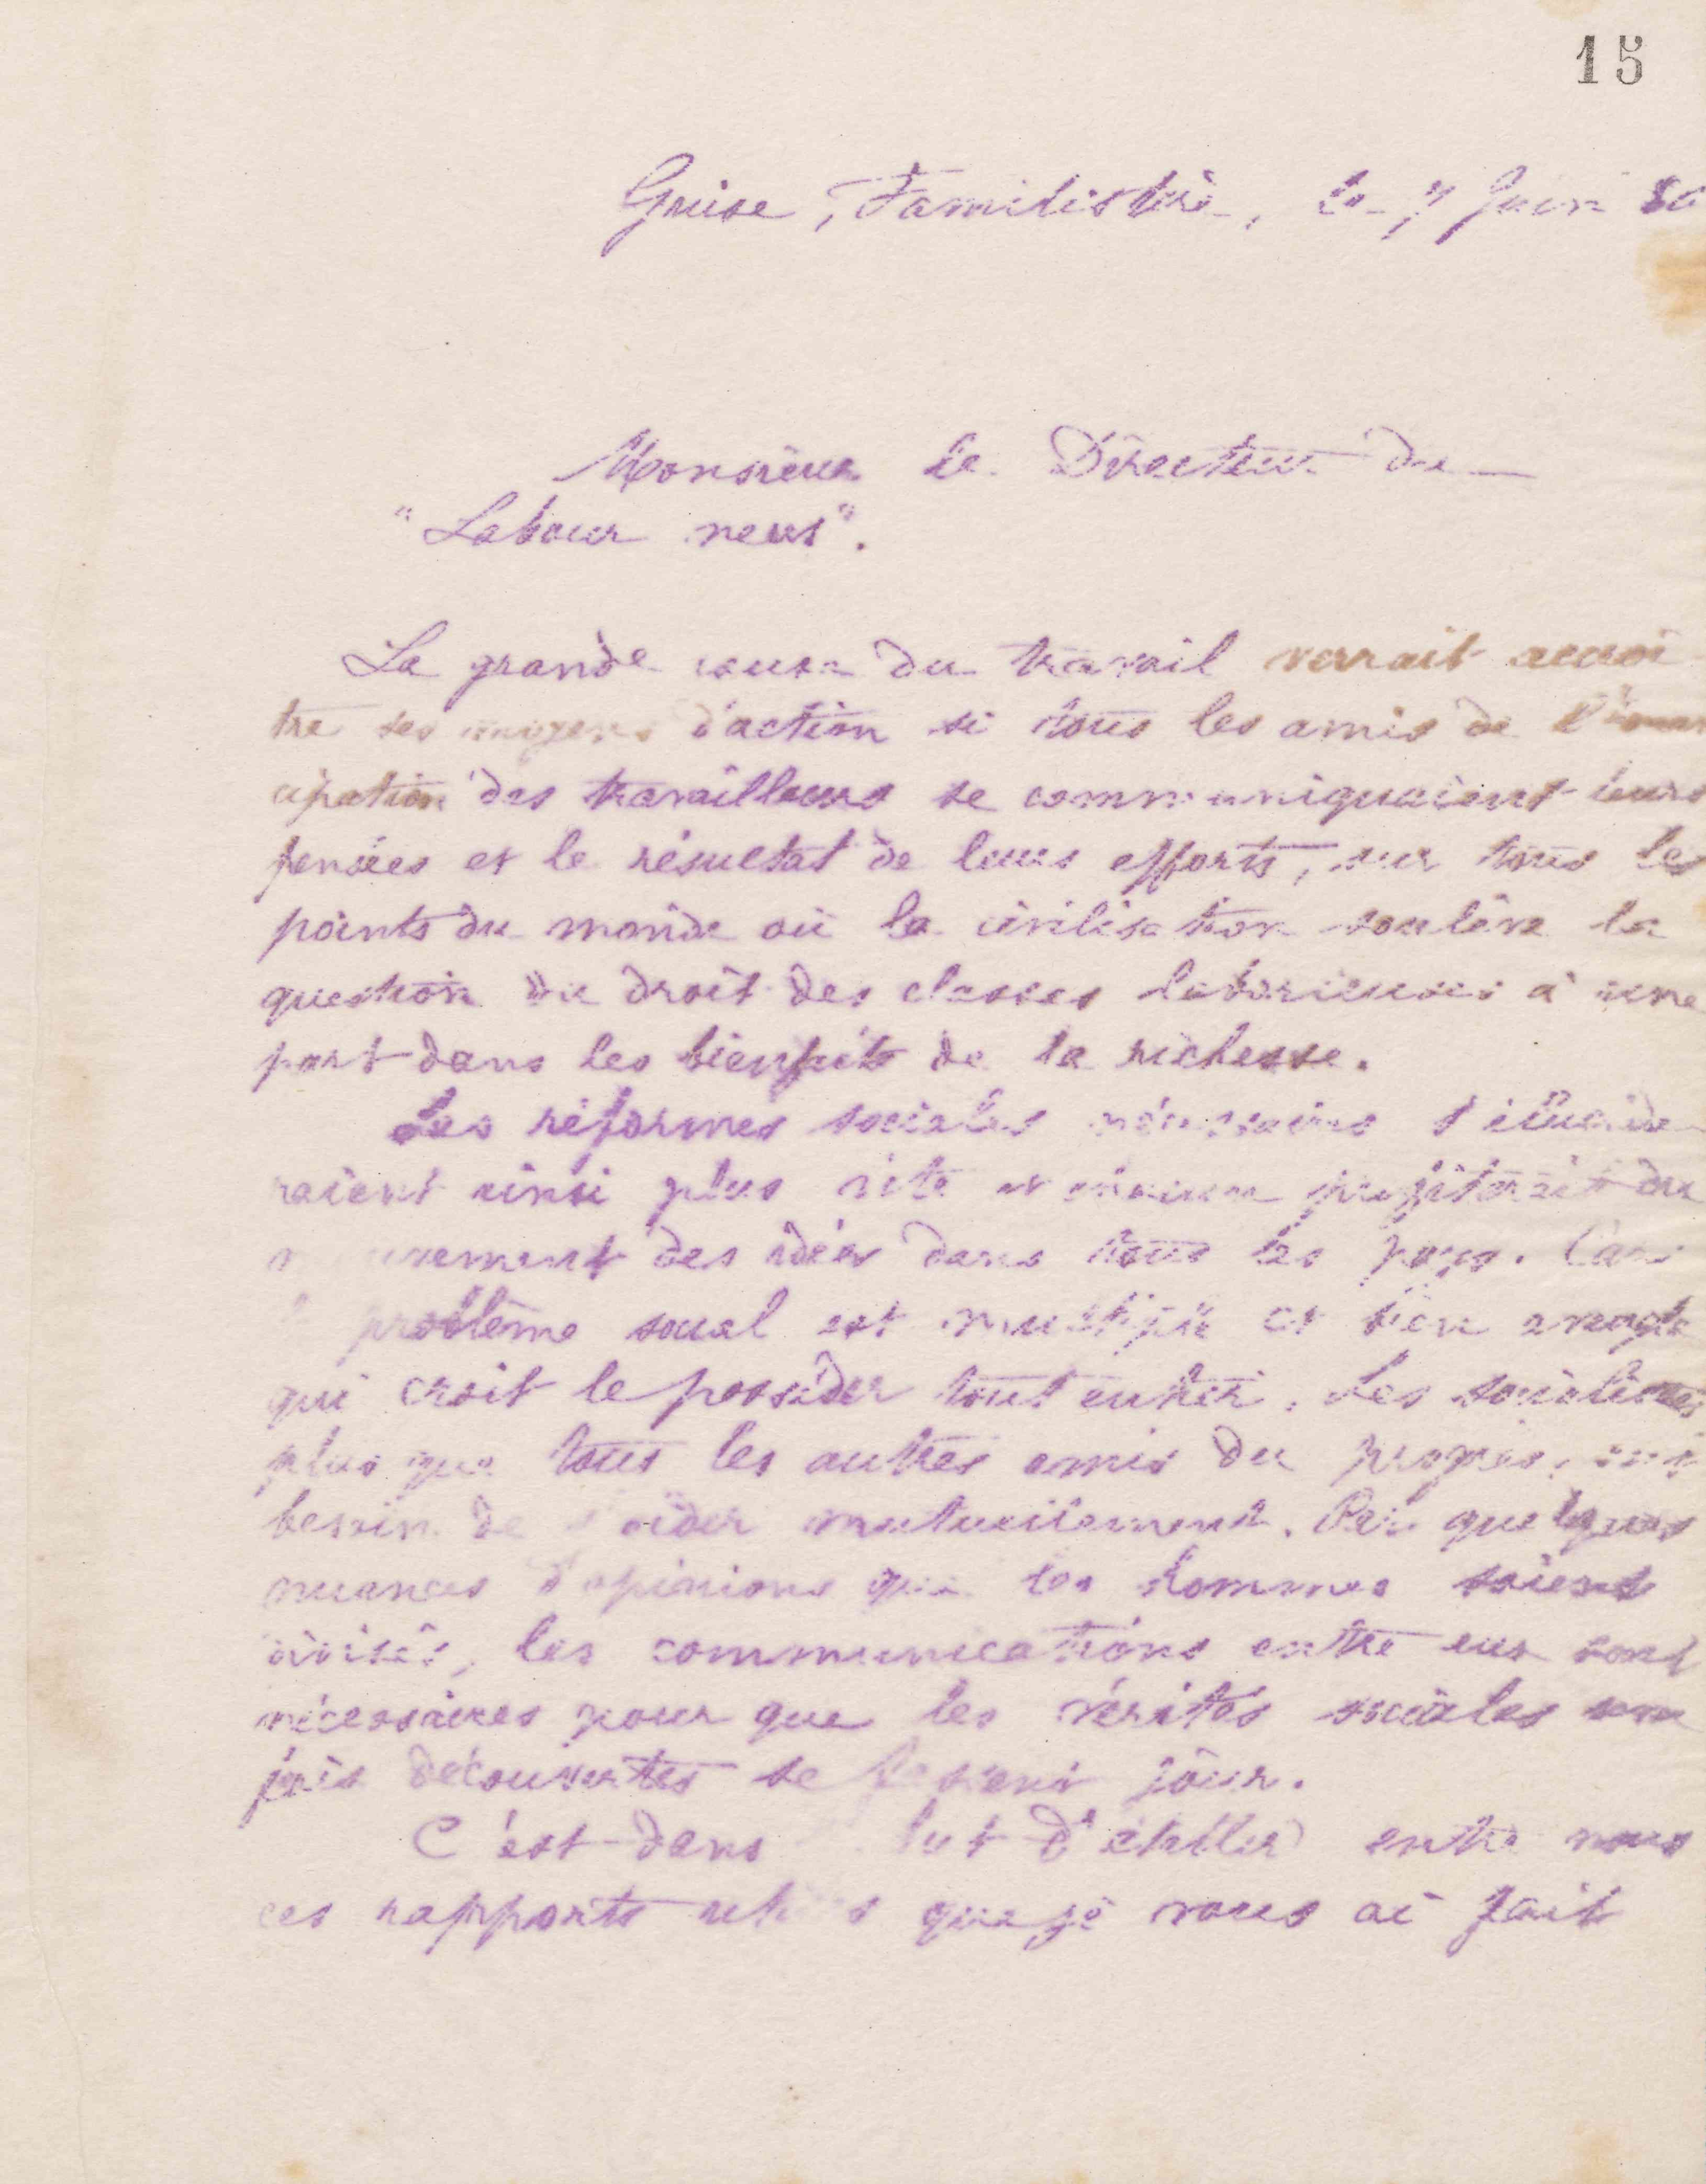 15
Guise, Familistère, le 7 Juin 80
Monsieur le Directeur du
"Labour news".
La grande cause du travail verrait accroî
tre ses moyens d'action si tous les amis de l'éman
cipation des travailleurs se communiquaient leurs
pensées et le résultat de leurs efforts, sur tous les
points du monde où la civilisation soulève la
question du droit des classes laborieuses à une
part dans les bienfaits de la richesse.
Les réformes sociales nécessaires s'élucide
raient ainsi plus vite et chacun profiterait du
mouvement des idées dans tous les pays. Car
le problème social est multiple et bien aveugle
qui croit le posséder tout entier. Les socialistes
plus que tous les autres amis du progrès, ont
besoin de s'aider mutuellement. Par quelques
nuances d'opinions que les hommes soient
divisés, les communications entre eux sont
nécessaires pour que les vérités sociales une
fois découvertes se fassent jour.
C'est dans but d'établir entre nous
ces rapports utiles que je vous ai fait